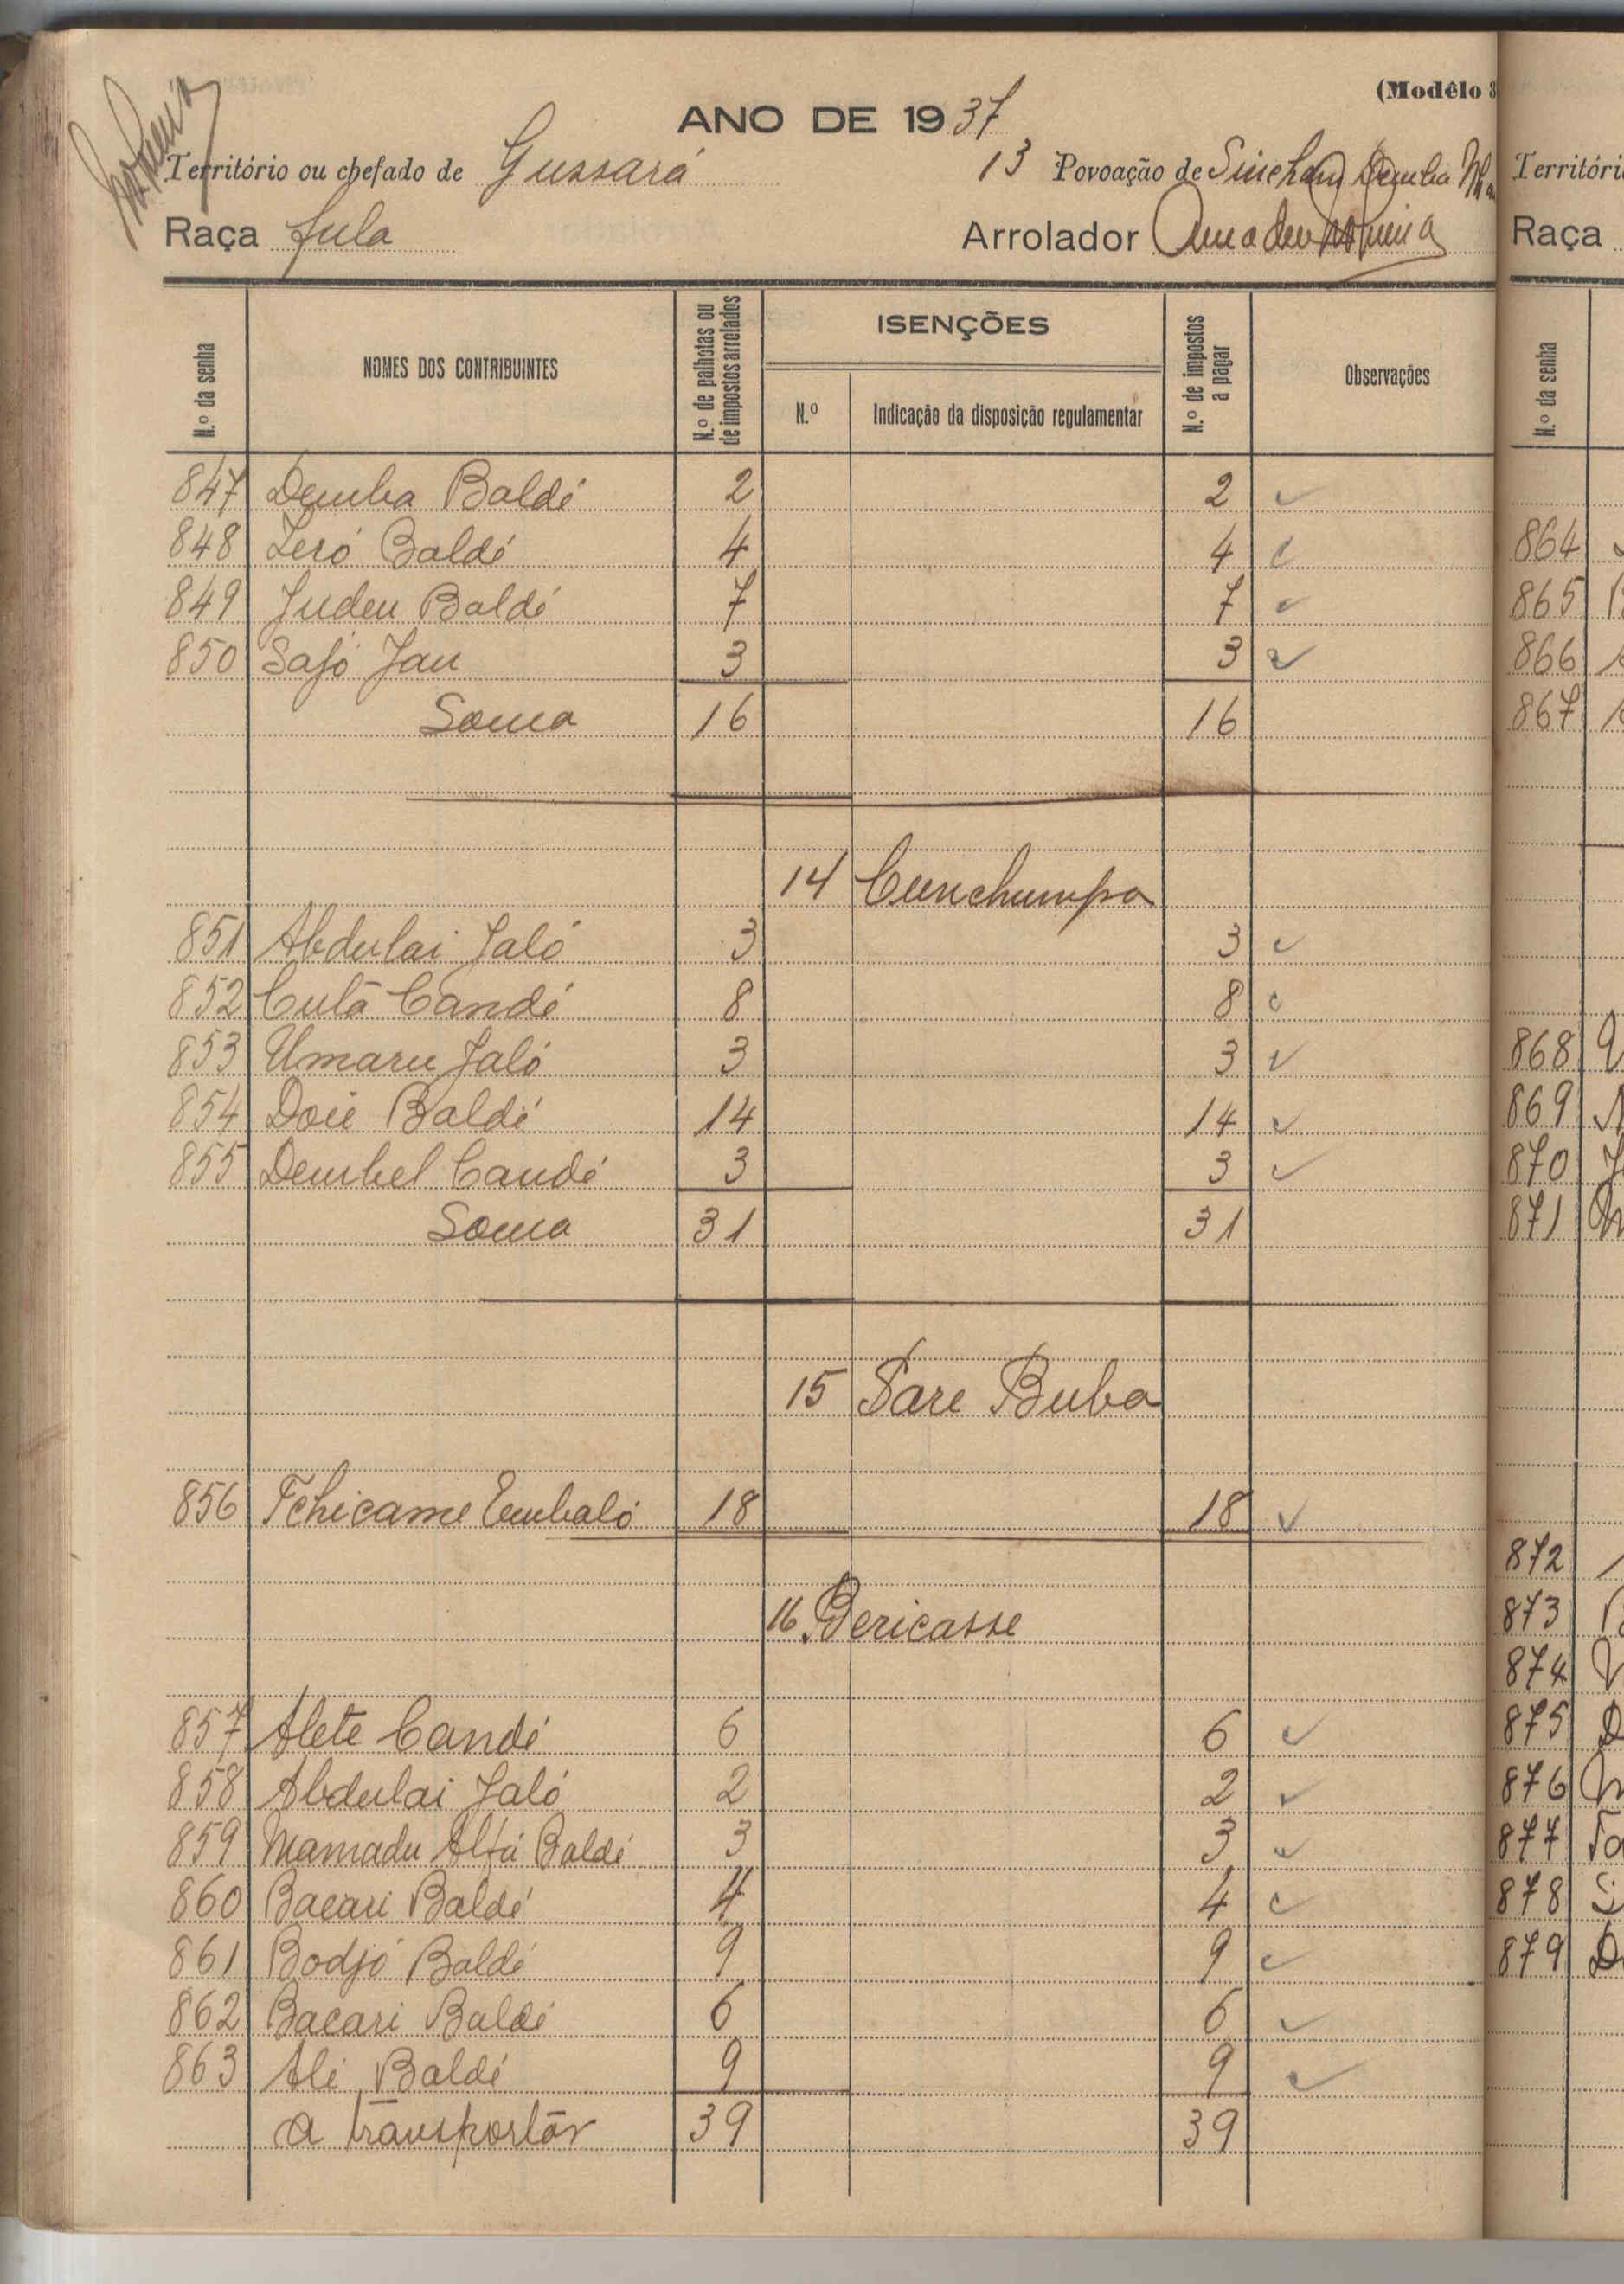 (Modêlo 3
ANO DE 1937
Território ou chefado de Gussará
13 Povoação de Sincham Demba
Raça fula
Arrolador Amadeu
N.º da senha
NOMES DOS CONTRIBUINTES
N.º de palhotas ou de impostos arrolados
ISENÇÕES
N.º
Indicação da disposição regulamentar
N.º de impostos a pagar
Observações
847 Demba Baldé 2 2 ✓
848 Leró Baldé 4 4
849 Judeu Baldé 7 7 ✓
850 Safó Jau 3 3 ✓
Soma 16 16
14 Cunchumpa
851 Abdulai Jaló 3 3 ✓
852 Culà Candé 8 8
853 Umaru Jaló 3 3 ✓
854 Doie Baldé 14 14 ✓
855 Dembel Candé 3 3 ✓
Soma 31 31
15 Sare Buba
856 Tchicame Embaló 18 18 ✓
16 Bericasse
857 Alete Candé 6 6 ✓
858 Abdulai Jaló 2 2 ✓
859 Mamadu Alfá Baldé 3 3 ✓
860 Bacari Baldé 4 4 ✓
861 Bodjó Baldé 9 9 ✓
862 Bacari Baldé 6 6 ✓
863 Ali Baldé 9 9 ✓
A transportár 39 39
Territóri
Raça
N.º da senha
864
865
866
867
868
869
870
871
872
873
874
875
876
877
878
879